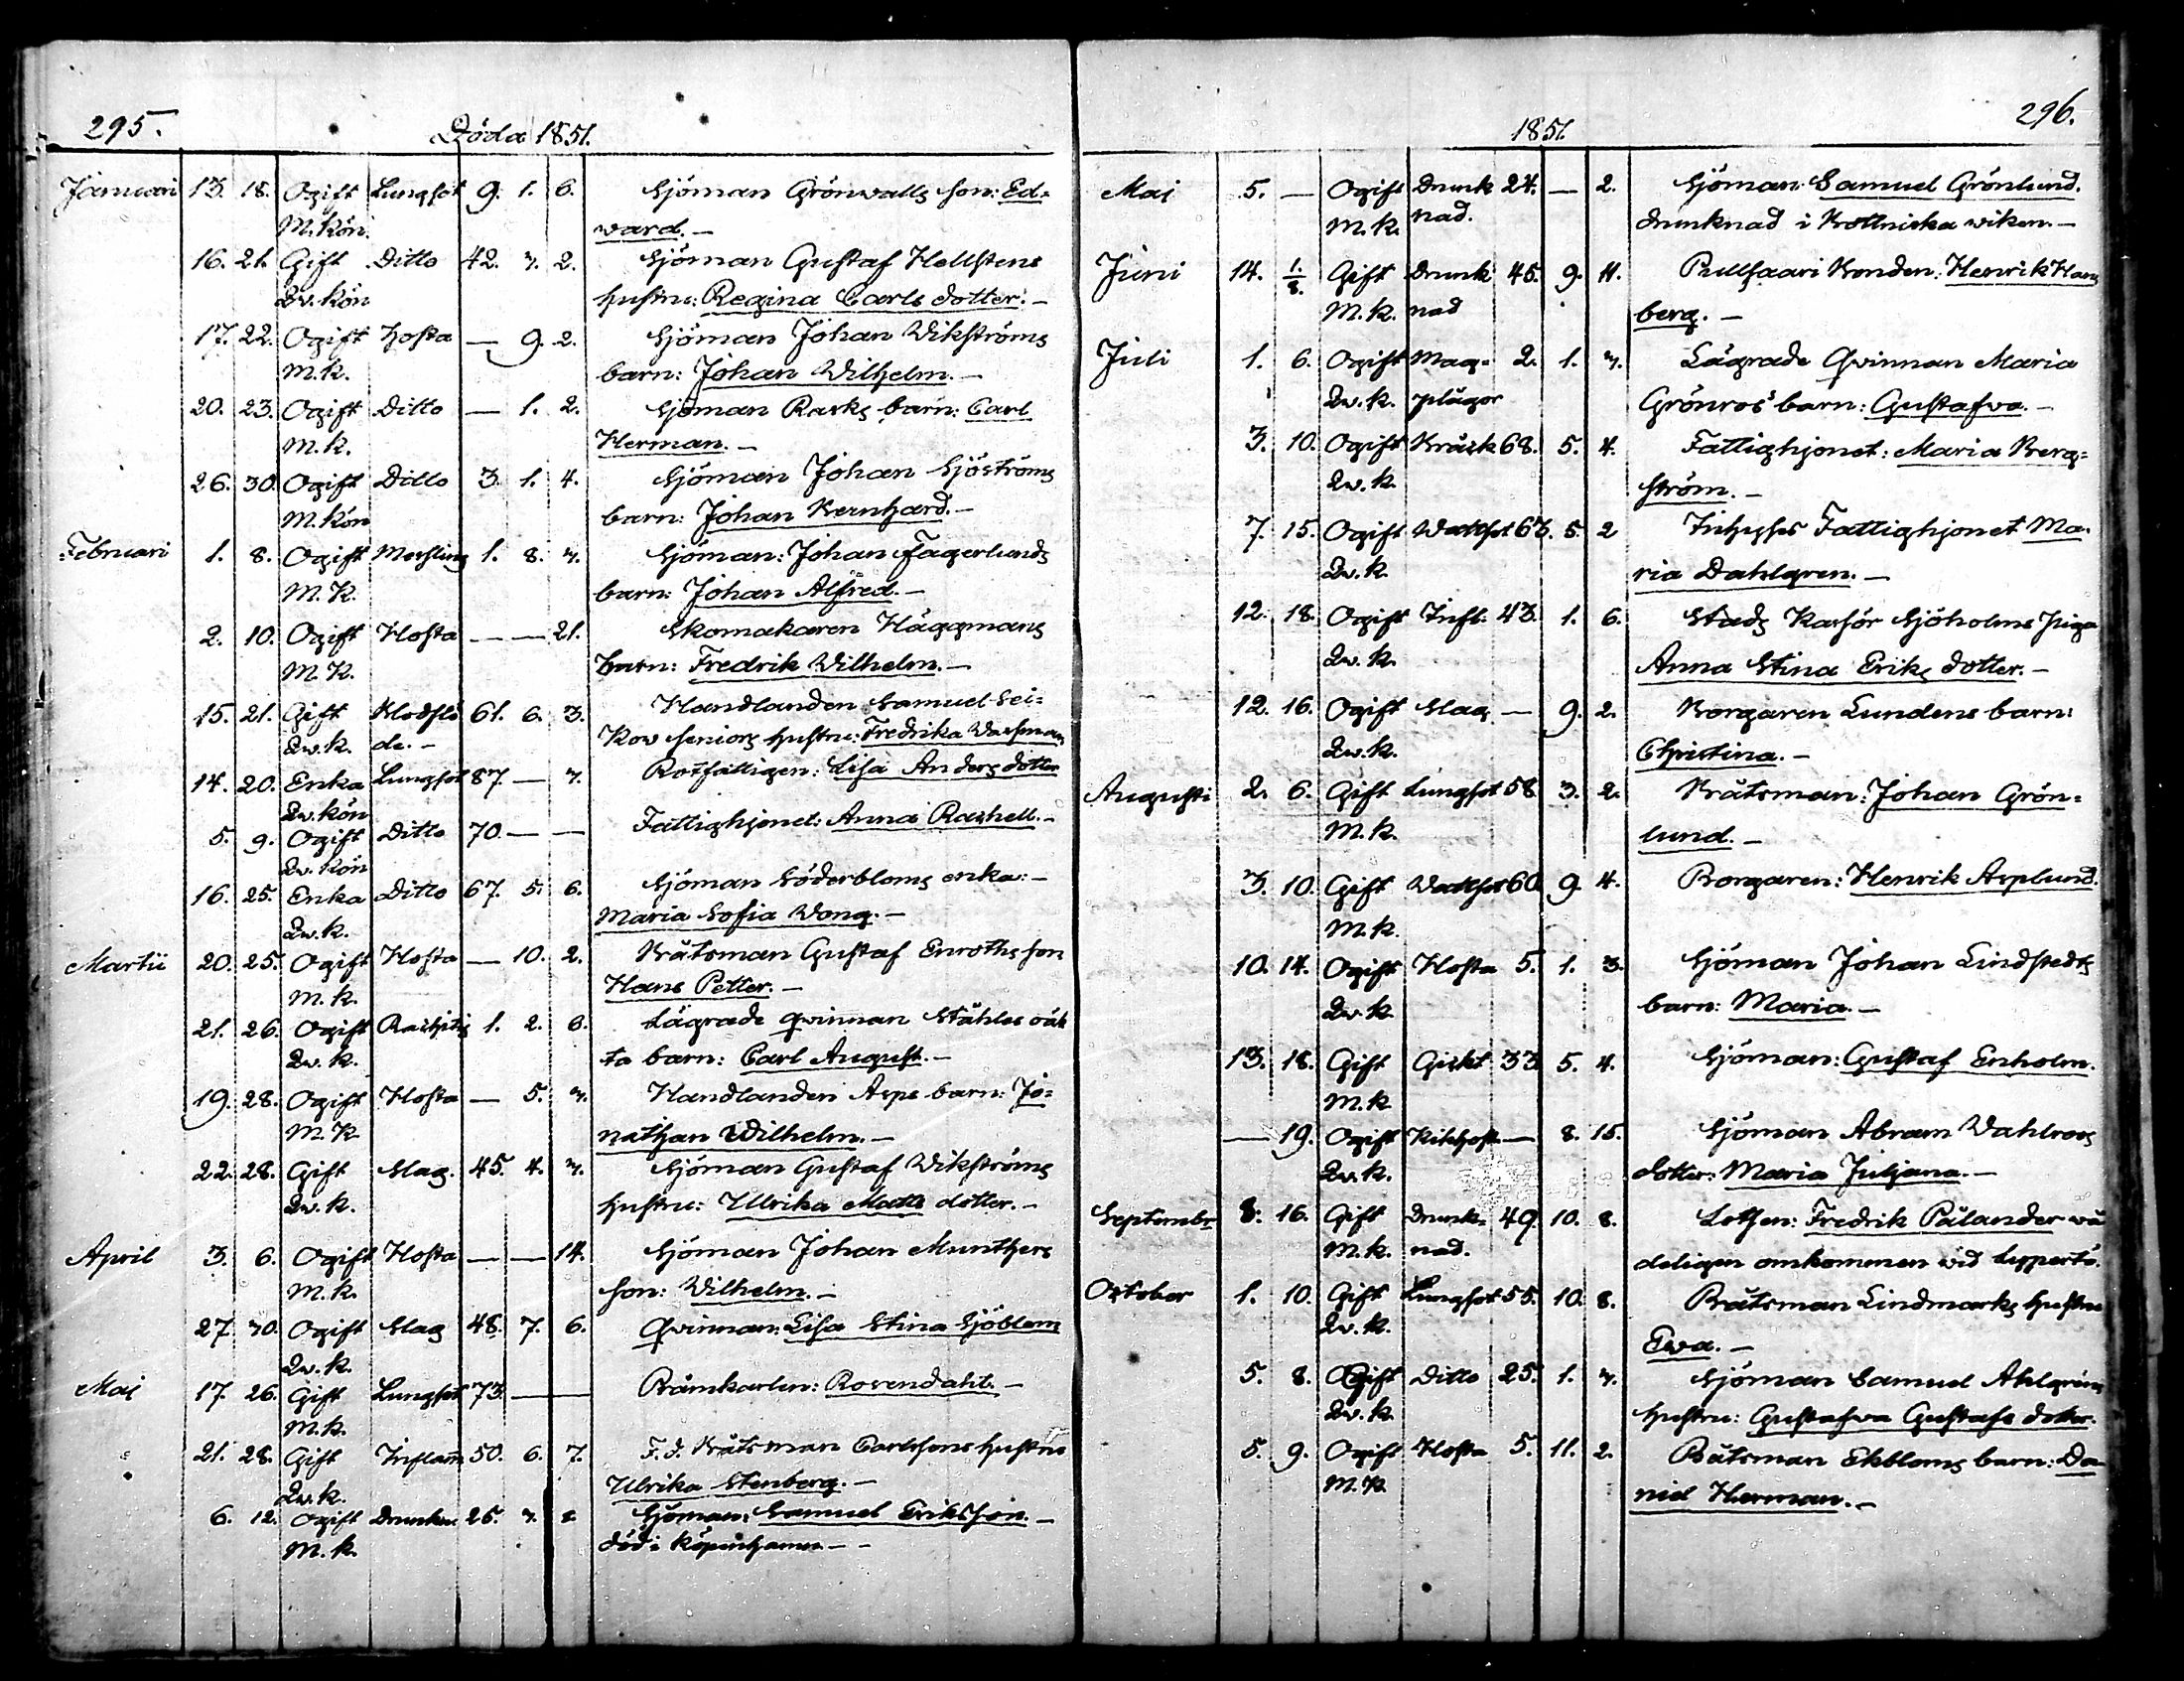 295.
Döda 1851.
Januari 13. 18. Ogift Lungsot 9. 1. 6. Sjöman Grönvalls son: Ed-
M. kön. ward. —
16. 21. Gift Ditto 42. 7. 2. Sjöman Gustaf Hellstens
Qv. kön hustru: Regina Carls dotter. —
17. 22. Ogift Hosta — 9. 2. Sjöman Johan Wikströms
M. k. barn: Johan Wilhelm. —
20. 23. Ogift Ditto — 1. 2. Sjöman Rasks barn: Carl
M. k. Herman. —
26. 30. Ogift Ditto 3. 1. 4. Sjöman Johan Sjöströms
M. kön barn: Johan Bernhard. —
Februari 1. 8. Ogift Messling 1. 8. 7. Sjöman: Johan Fagerlunds
M. K. barn: Johan Alfred. —
2. 10. Ogift Hosta — — 21. Skomakaren Häggmans
M. K. barn: Fredrik Wilhelm. —
15. 21. Gift Blodflö 61. 6. 3. Handlanden Samuel Sei-
Qw. k. de. — kow seniors hustru: Fredrika
14. 20. Enka Lungsot 87. — 7. Rotfattigen: Lisa Anders dotter
Qw. kön
5. 9. Ogift Ditto 70. — — Fattighjonet: Anna Raxhell. —
Qv. kön
16. 25. Enka Ditto 67. 5. 6. Sjöman Söderbloms enka: —
Qw. k. Maria Sofia Wong. —
Martii 20. 25. Ogift Hosta — 10. 2. Båtsman Gustaf Enroths son
M. k. Hans Petter. —
21. 26. Ogift Rachitis 1. 2. 6. Lägrade qvinnan Ståhles oäk
Qw. k. ta barn: Carl August. —
19. 28. Ogift Hosta — 5. 7. Handlanden Asps barn: Jo-
M. K nathan Wilhelm. —
22. 28. Gift Slag. 45. 4. 7. Sjöman Gustaf Wikströms
Qw. k. hustru: Ulrika Matts dotter. —
April 3. 6. Ogift Hosta — — 14. Sjöman Johan Munthers
M. k. son: Wilhelm. —
27. 30. Ogift Slag 48. 7. 6. Qvinnan: Lisa Stina Sjöblom
Qw. k.
Maj 17. 26. Gift Lungsot 73. — — Pråmkarlen: Rosendahl. —
M. k.
21. 28. Gift Inflam 50. 6. 7. F. d. Båtsman Carlssons hustru
Qw. k. Ulrika Stenberg. —
6. 12. Ogift Drunkn 25. 7. Sjöman: Samuel Eriksson. —
M. k. död i Köpenhamn — -
296.
1851.
Maj 5. — Ogift Drunk 24. — 2. Sjöman: Samuel Grönlund.
M. k. nad. drunknad i Bottniska wiken. —
Juni 14. 1./8. Gift Drunk 45. 9. 11. Pullsaari Bonden: Henrik Hans
M. k. nad berg. —
Juli 1. 6. Ogift Mag- 2. 1. 7. Lägrade Qvinnan Maria
Qw. k. plågor Grönros barn: Gustafva. —
3. 10. Ogift Bråck 68. 5. 4. Fattighjonet: Maria Berg-
Qw. k. ström. —
7. 15. Ogift Wattsot 63. 5. 2 Inhyses Fattighjonet Ma-
Qw. k. ria Dahlgren. —
12. 18. Ogift Infl. 43. 1. 6. Stads Kassör Sjöholms piga
Qw. k. Anna Stina Eriks dotter. —
12. 16. Ogift Slag — 9. 2. Borgaren Lundens barn:
Qw. k. Christina. —
Augusti 2. 6. Gift Lungsot 58 3. 2. Båtsman: Johan Grön-
M. k. lund. —
3. 10. Gift Wattsot 60. 9. 4. Borgaren: Henrik Asplund.
M. k.
10. 14. Ogift Hosta 5. 1. 3. Sjöman Johan Lindstedts
Qw. k barn: Maria. —
13. 18. Gift Gickt 33 5. 4. Sjöman: Gustaf Enholm.
M. k
— 19. Ogift Kikhost — 8. 15. Sjöman Abram Wahlroos
Qw. k. dotter: Maria Juljana. —
Septembr 8. 16. Gift Drunk- 49. 10. 8. Lotsen: Fredrik Pålander wå
M. k. nad. deligen omkommen wid
October 1. 10. Gift Lungsot 55. 10. 8. Båtsman Lindmarks hustru
Qw. k. Ewa. —
5. 8. Gift Ditto 25. 1. 7. Sjöman Samuel Ahlgrens
Qw. k. hustru: Gustafwa Gustafs dotter.
5. 9. Ogift Hosta 5. 11. 2. Båtsman Ekbloms barn: Da-
M. k. niel Herman. —